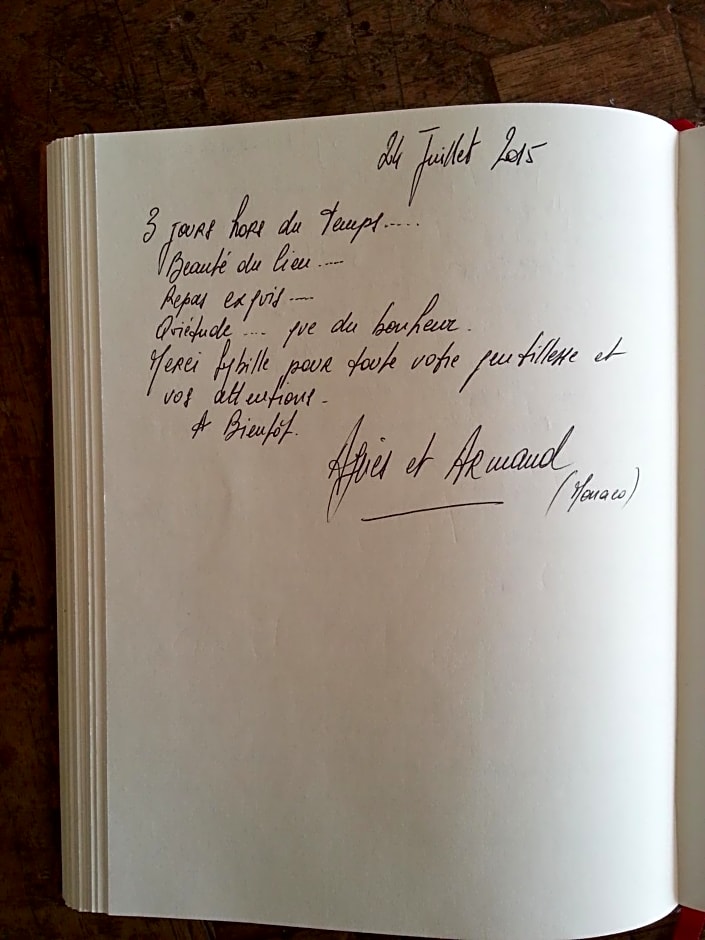 24 Juillet 2015
3 jours hors du temps.....
Beauté du lieu....
Repas exquis....
Quiétude.... que du bonheur.
Merci Sybille pour toute votre gentillesse et
vos attentions.
A Bientôt.
et Armand
(Monaco)